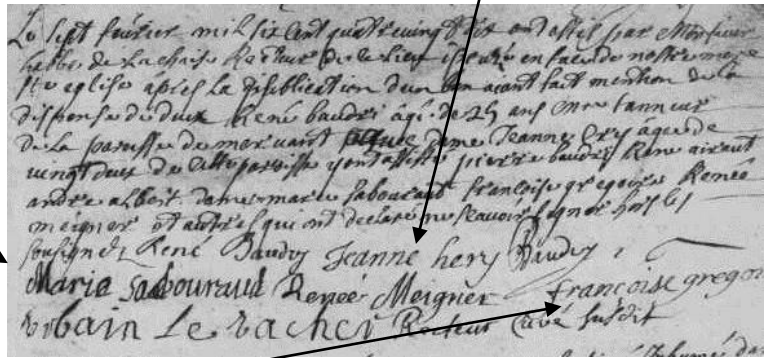 Le sept février mil six cent quatre vingt dix ont estés par Monsieur
de la chaise Recteur de ce lieu espousé en face de nostre mere
Ste eglise après la publication d'un ban aiant fait mention de la
dispense de deux René baudri âgé de 25 ans Mre tanneur
de la paroisse de mervant dame Jeanne Ery âgée de
vingt deux de cette paroisse y ont assisté pierre baudri René airaut
andre albert dame marie sabouraut françoise gregoire Renée
meigner et autres qui ont declaré ne scavoir signer hors les
sousignéz René Baudry Jeanne hery Baudry
Marie Sabouraud Reneé Meigner françoise gregoi
Vrbain Le vacher Recteur Curé susdit